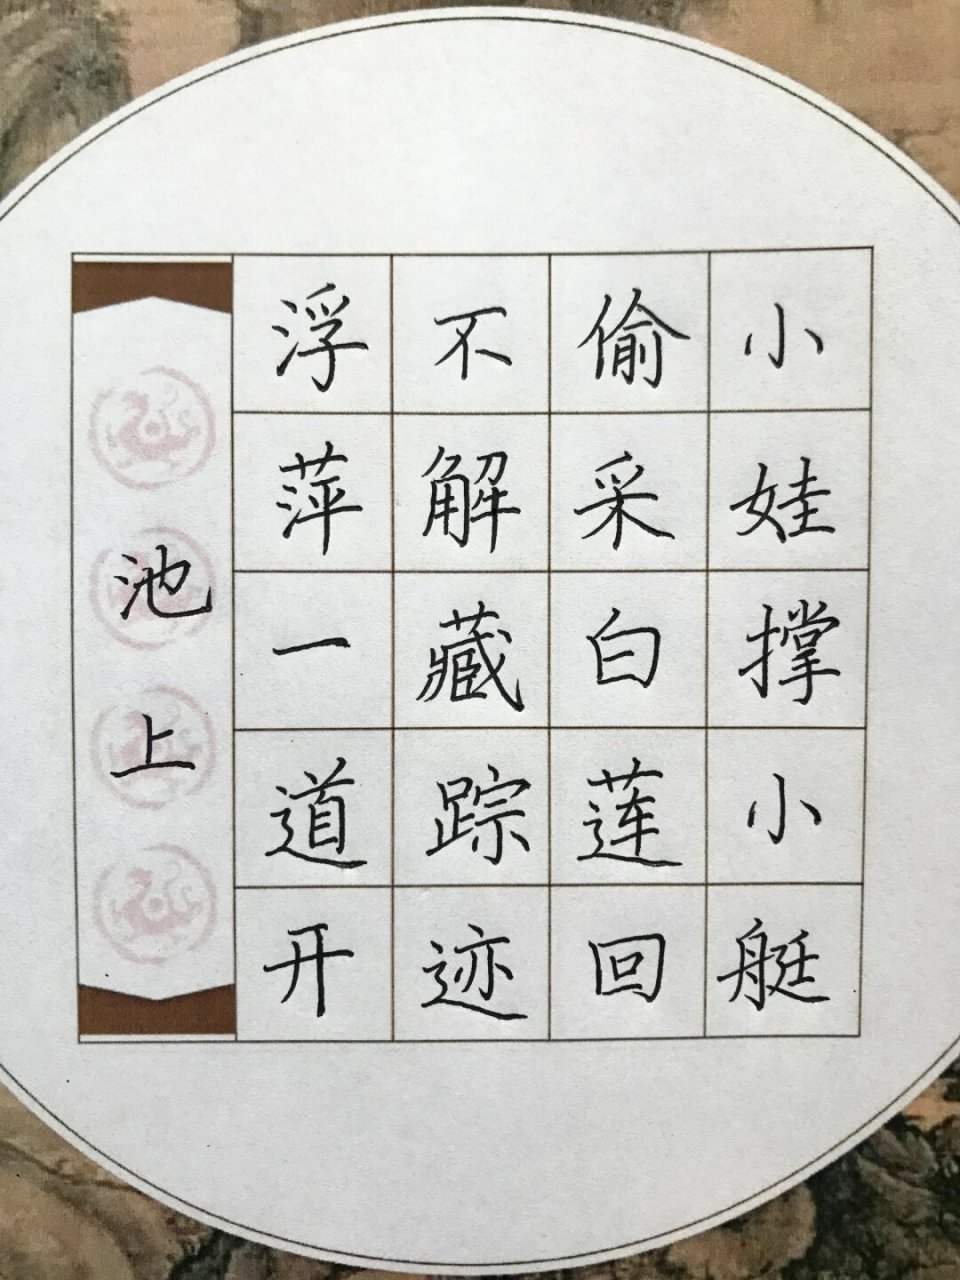 小娃撑小艇
偷采白莲回
不解藏踪迹
浮萍一道开
池上